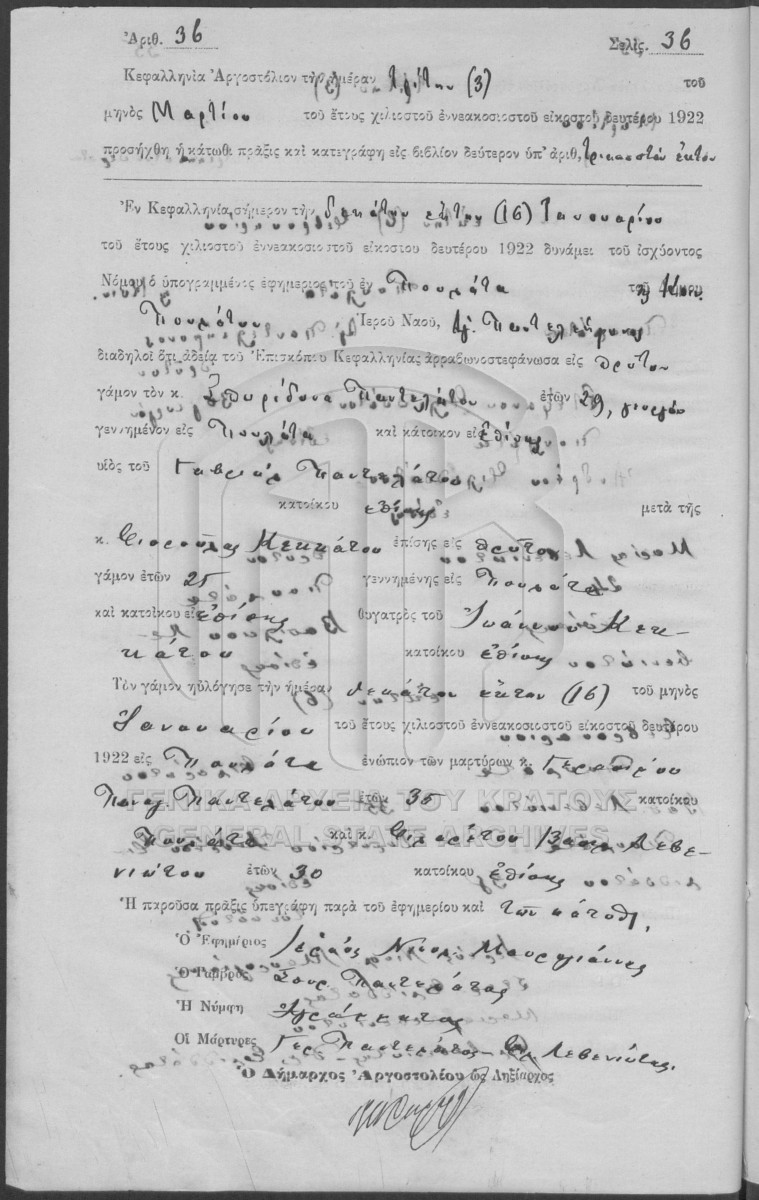 Ἀριθ. 36 Σελὶς. 36
Κεφαλληνία Ἀργοστόλιον τὴν ἡμέραν τρίτην (3) τοῦ
μηνὸς Μαρτίου τοῦ ἔτους χιλιοστοῦ ἐννεακοσιοστοῦ εἰκοστοῦ δευτέρου 1922
προσήχθη ἡ κάτωθι πρᾶξις καὶ κατεγράφη εἰς βιβλίον δεύτερον ὑπ' ἀριθ, τριακοστὸν ἕκτον
Ἐν Κεφαλληνίᾳ σήμερον τὴν δεκάτην ἕκτην (16) Ἰανουαρίου
τοῦ ἔτους χιλιοστοῦ ἐννεακοσιοστοῦ εἰκοστοῦ δευτέρου 1922 δυνάμει τοῦ ἰσχύοντος
Νόμου ὁ ὑπογραμμένος ἐφημέριος τοῦ ἐν Πουλάτα
Πουλάτων Ἱεροῦ Ναοῦ, Ἁγ. Παντελεήμονος
διαδηλοῖ ὅτι ἀδείᾳ τοῦ Ἐπισκόπου Κεφαλληνίας ἀρραβωνοστεφάνωσα εἰς πρῶτον
γάμον τὸν κ. Σπυρίδωνα Παντελάτον ἐτῶν 29, γεωργόν
γεννημένον εἰς Πουλάτα καὶ κάτοικον εἰς ἐπίσης
υἱὸς τοῦ Γαβριὴλ Παντελάτου
κατοίκου ἐπίσης μετὰ τῆς
κ. Φιορούλας Κεκκάτου ἐπίσης εἰς πρῶτον
γάμον ἐτῶν 25 γεννημένης εἰς Πουλάτα
καὶ κατοίκου εἰς ἐπίσης θυγατρὸς τοῦ Ἰωάννου Κεκ-
κάτου κατοίκου ἐπίσης
Τὸν γάμον ηὐλόγησε τὴν ἡμέραν δεκάτην ἕκτην (16) τοῦ μηνὸς
Ἰανουαρίου τοῦ ἔτους χιλιοστοῦ ἐννεακοσιοστοῦ εἰκοστοῦ δευτέρου
1922 εἰς Πουλάτα ἐνώπιον τῶν μαρτύρων κ. Γερασίμου
Παναγ Παντελάτου ἐτῶν 35 κατοίκου
Πουλάτα καὶ κ. Βασ Λεβε-
νιώτου ἐτῶν 30 κατοίκου ἐπίσης
Ἡ παροῦσα πρᾶξις ὑπεγράφη παρὰ τοῦ ἐφημερίου καὶ τῶν κάτωθι,
Ὁ Ἐφημέριος Ἱερεὺς Νικολ Μαυρογιάννης
Ὁ Γαμβρὸς Σπυρ. Παντελάτος
Ἡ Νύμφη Ἀγράμματος
Οἱ Μάρτυρες Γερ Παντελάτος - Λεβενιώτης.
Ὁ Δήμαρχος Ἀργοστολίου ὡς Ληξίαρχος
ΓΕΝΙΚΑ ΑΡΧΕΙΑ ΤΟΥ ΚΡΑΤΟΥΣ
GENERAL STATE ARCHIVES